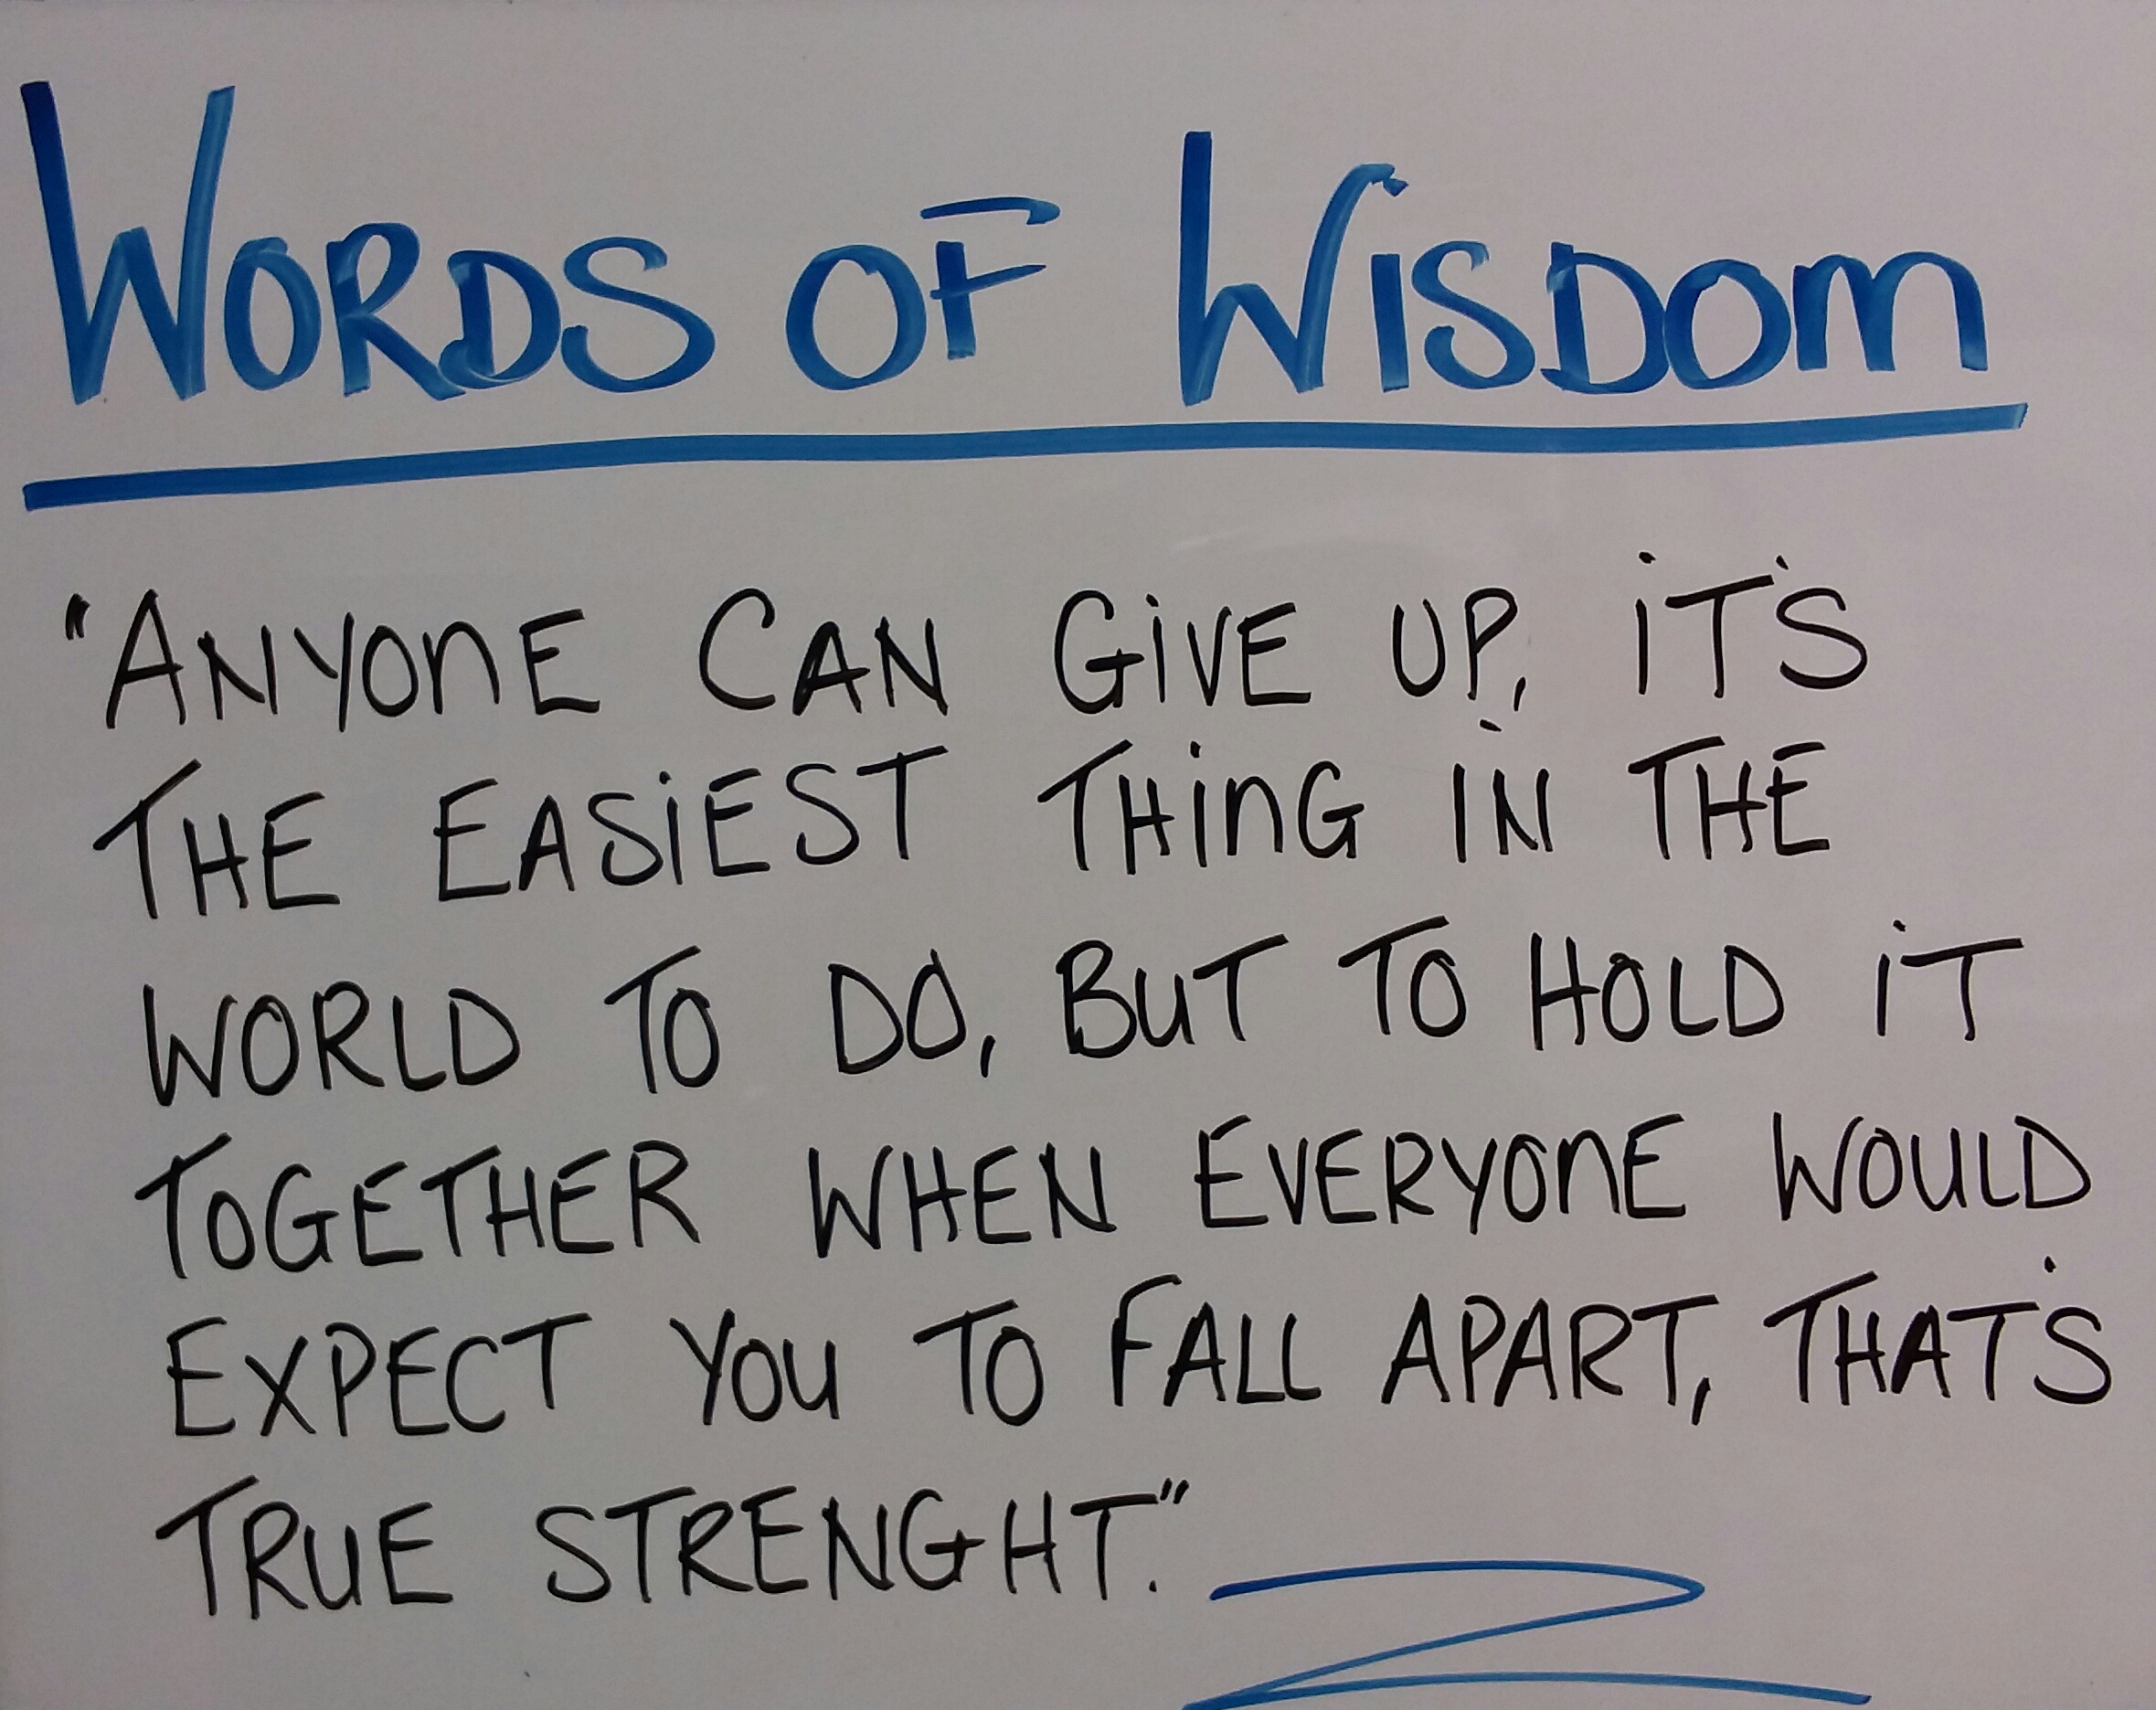 WORDS OF WISDOM
"ANYONE CAN GIVE UP, IT'S
THE EASIEST THING IN THE
WORLD TO DO, BUT TO HOLD IT
TOGETHER WHEN EVERYONE WOULD
EXPECT YOU TO FALL APART, THAT'S
TRUE STRENGHT."